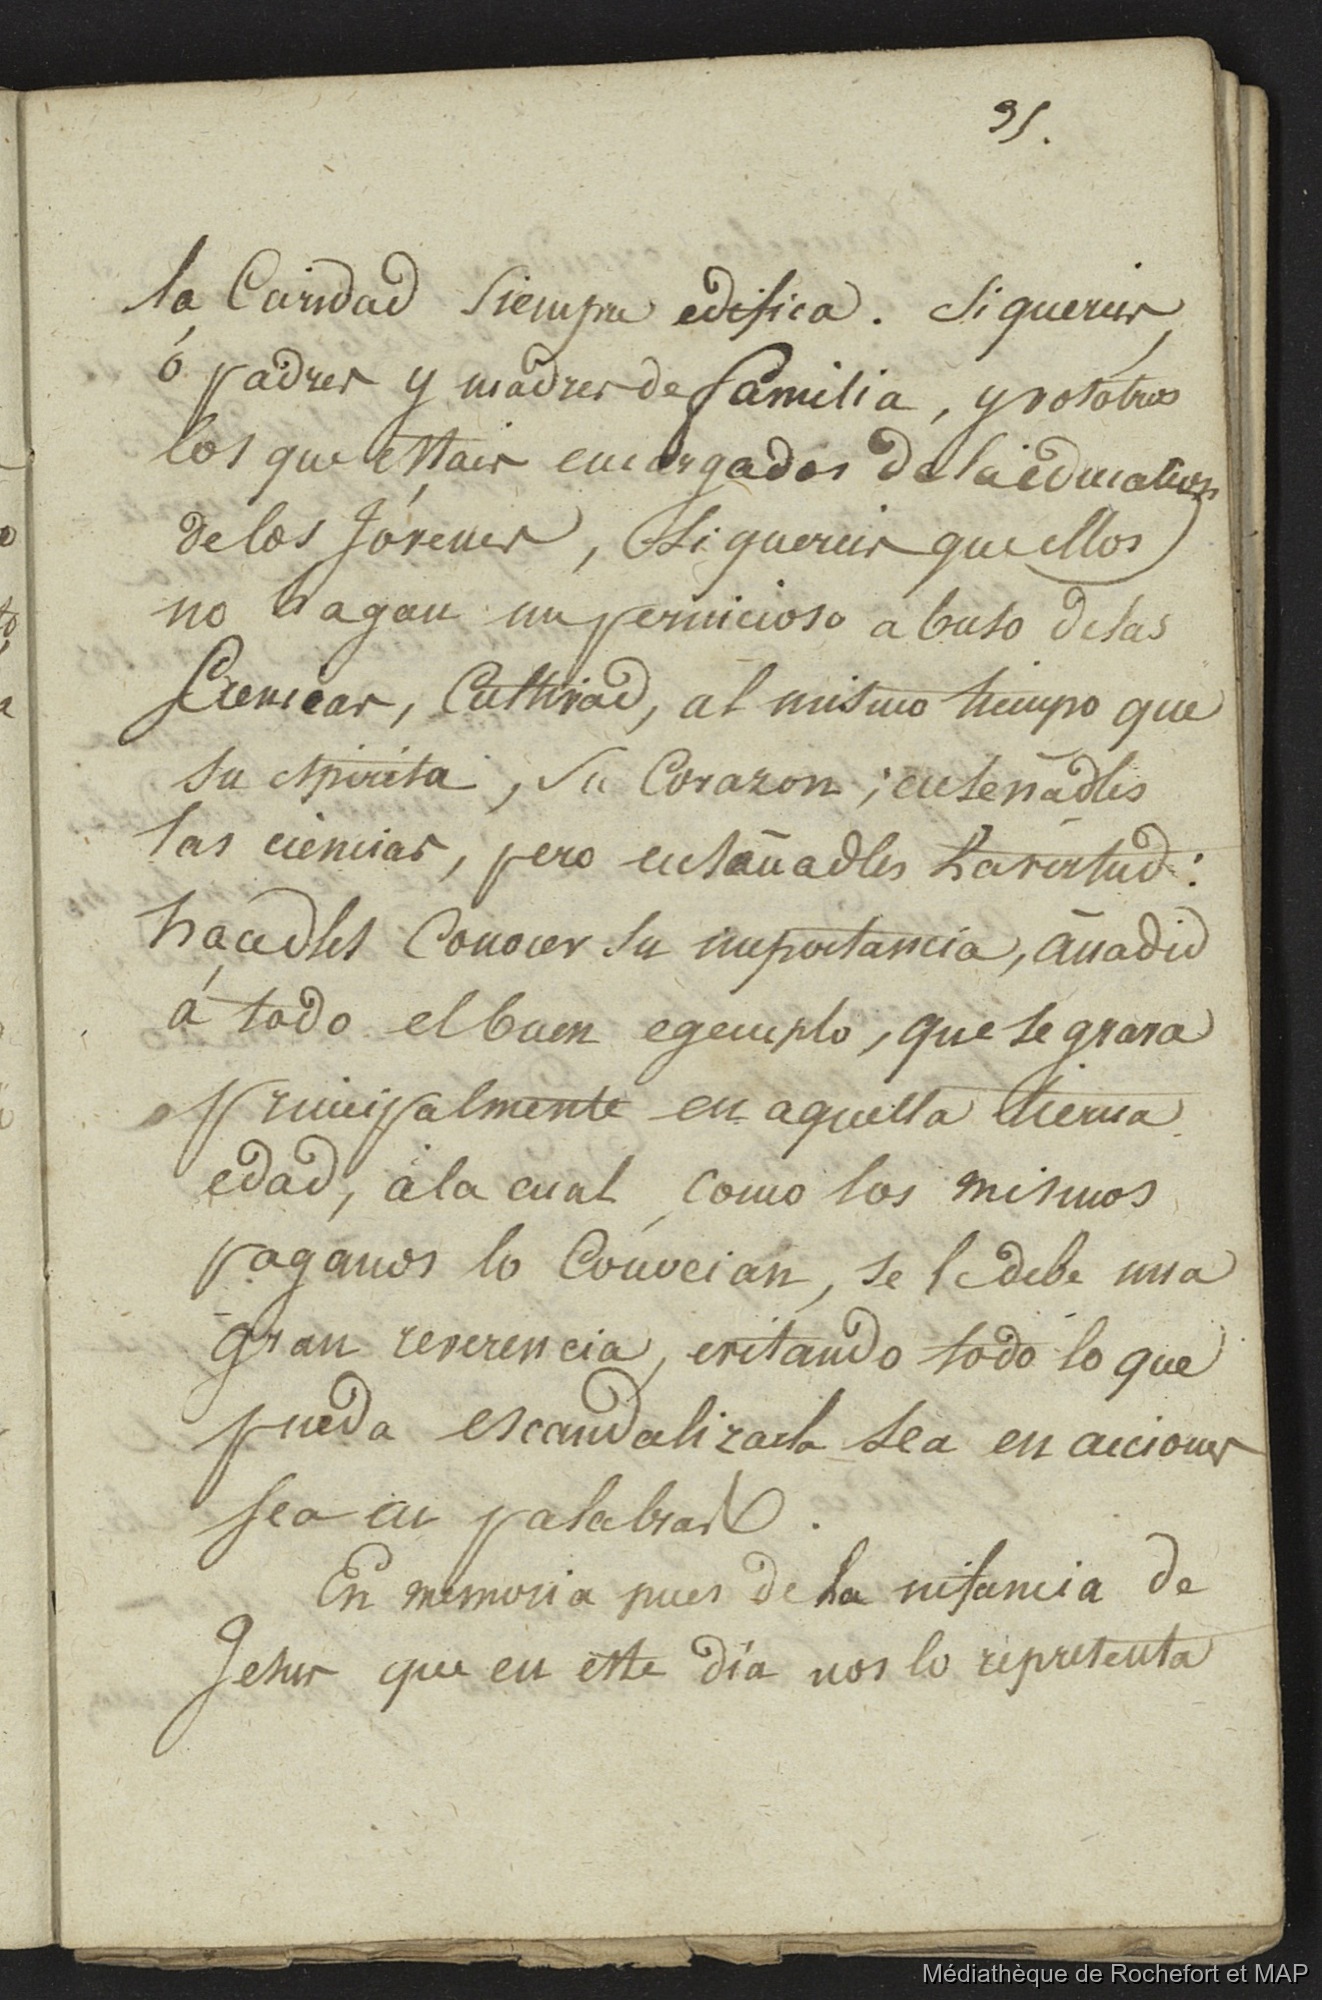 35.
la Caridad siempre edifica. Si quereis,
ó padres y madres de familia, y vosotros
los que estais encargados de la educacion
de los Jóvenes, si quereis que ellos
no hagan un pernicioso abuso de las
Ciencias, Cultivad, al mismo tiempo que
su espirita, su Corazon; enseñadles
las ciencias, pero enseñadles la virtud:
hacedles Conocer su importancia, añadid
á todo el buen egemplo, que se grava
principalmente en aquella tierna
edad, á la cual, como los mismos
paganos lo Conocian, se le debe una
gran reverencia, evitando todo lo que
pueda escandalizarla sea en acciones
sea en palabras.
En memoria pues de la infancia de
Jesus que en este día nos lo representa
Médiathèque de Rochefort et MAP